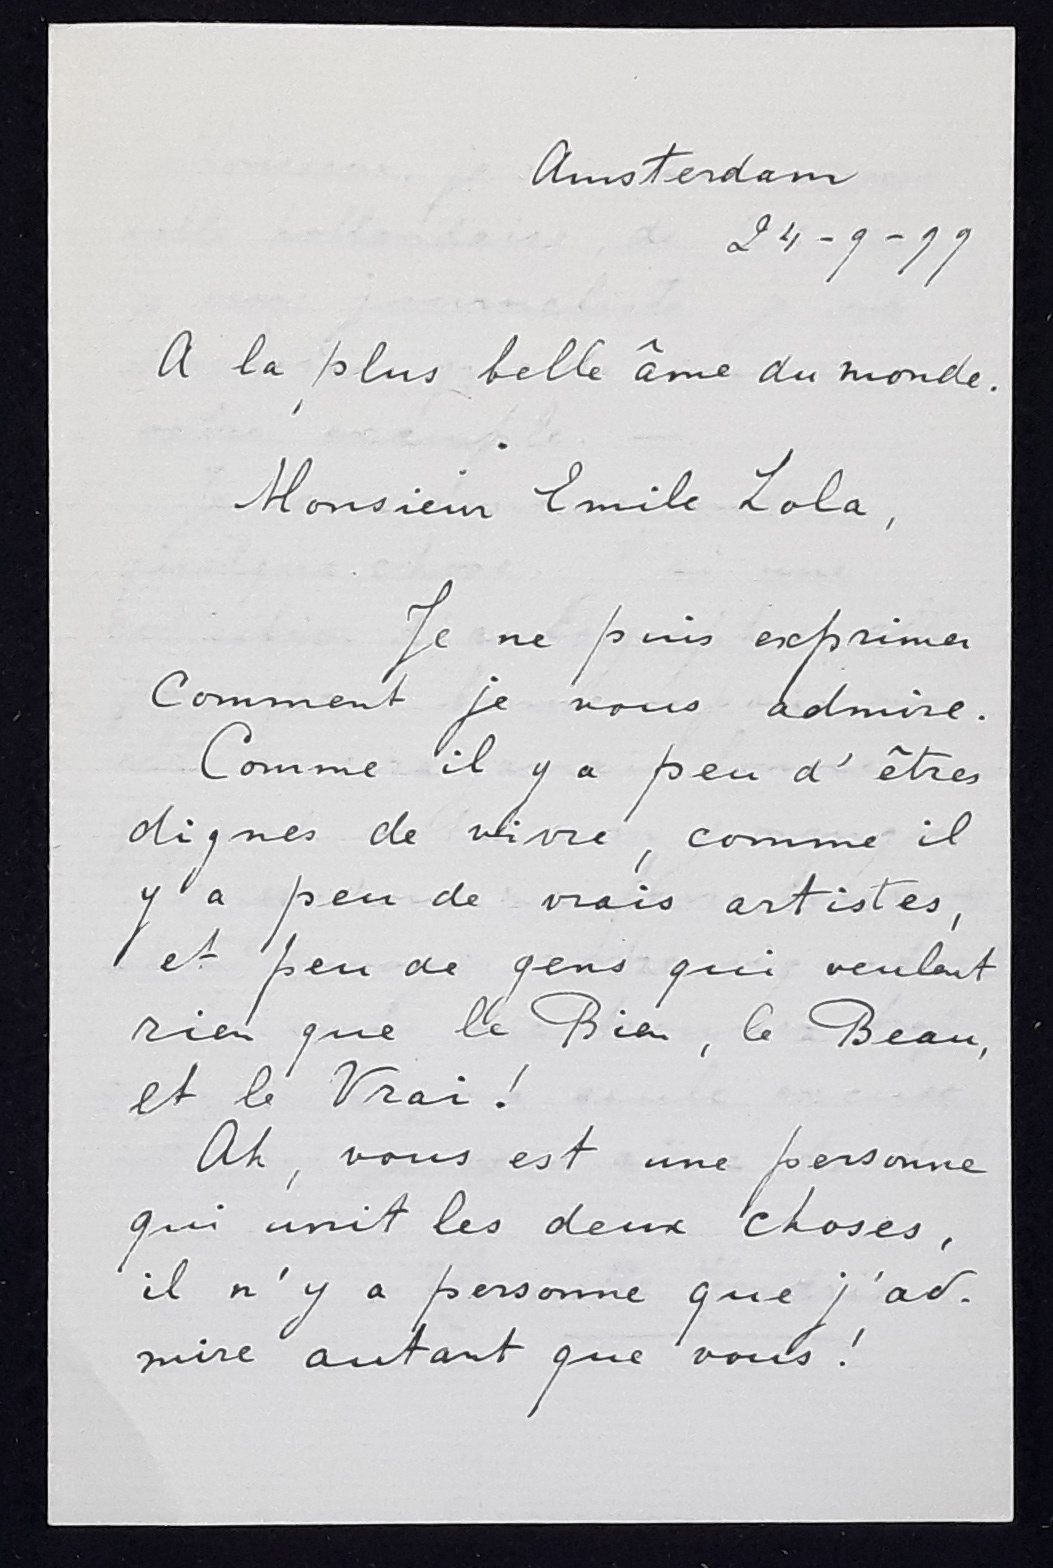 Amsterdam
24-9-99
A la plus belle âme du monde.
Monsieur Emile Zola,
Je ne puis exprimer
comment je vous admire.
Comme il y a peu d'êtres
dignes de vivre, comme il
y a peu de vrais artistes,
et peu de gens qui veulent
rien que le Bien, le Beau,
et le Vrai!
Ah, vous est une personne
qui unit les deux choses,
il n'y a personne que j'ad-
mire autant que vous!